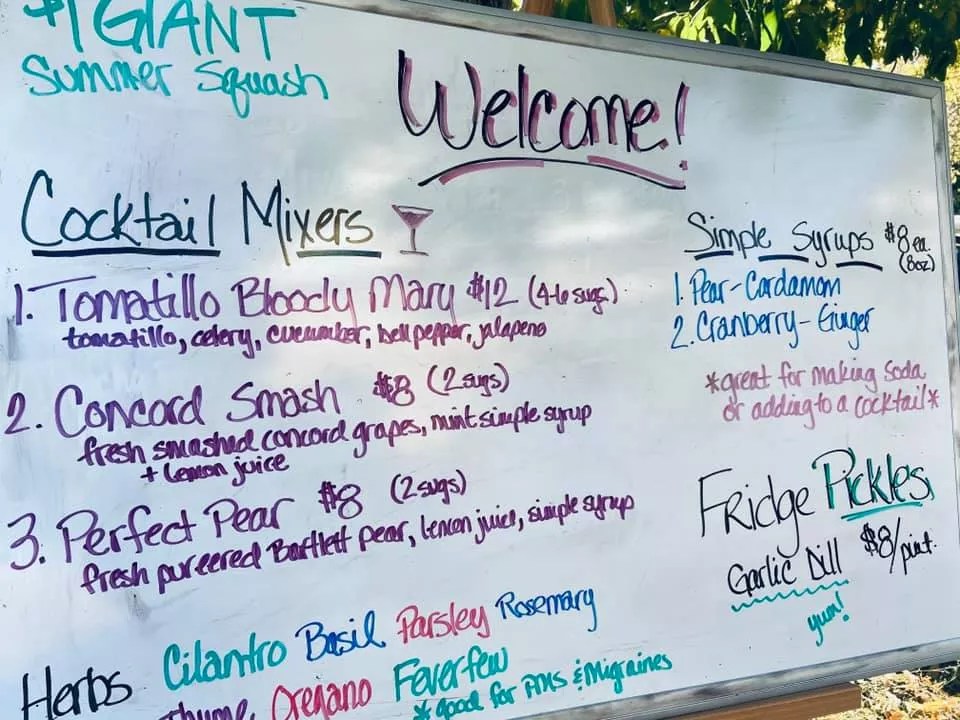 $1 GIANT
Summer Squash
Welcome!
Cocktail Mixers
1. Tomatillo Bloody Mary $12 (4-6 svgs)
tomatillo, celery, cucumber, bell pepper, jalapeno
2. Concord Smash $8 (2 svgs)
fresh smashed concord grapes, mint simple syrup
+ lemon juice
3. Perfect Pear $8 (2 svgs)
fresh pureered Bartlett pear, lemon juice, simple syrup
Herbs Cilantro Basil Parsley Rosemary
Thyme Oregano Feverfew
*good for PMS & Migraines
Simple Syrups $8 ea.
(8oz)
1. Pear-Cardamom
2. Cranberry-Ginger
*great for making soda
or adding to a cocktail*
Fridge Pickles
Garlic Dill $8/pint.
yum!